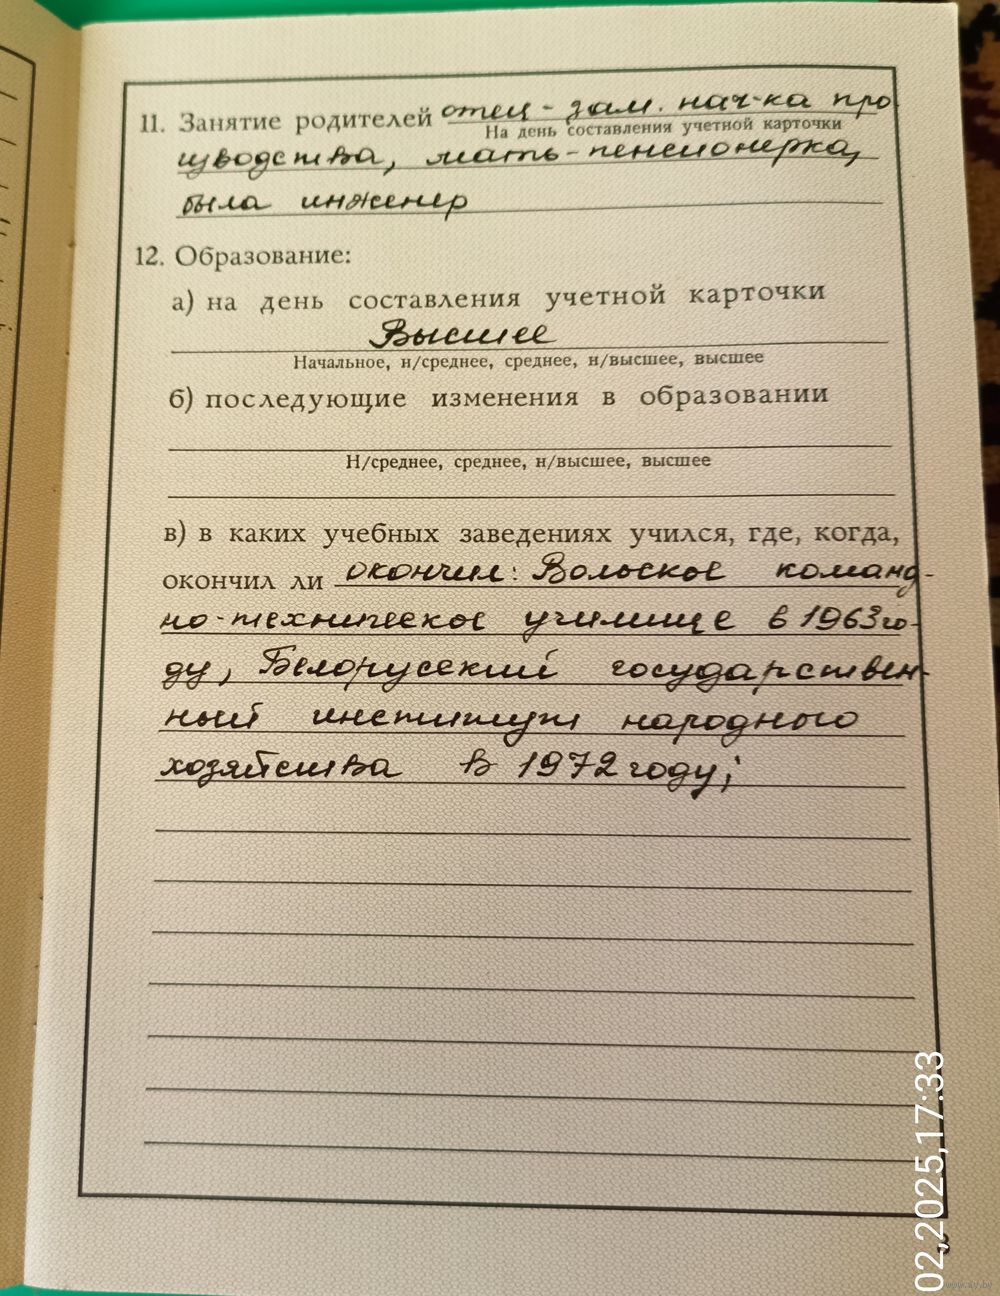 11. Занятие родителей отец - зам. нач-ка про
На день составления учетной карточки
изводства, мать - пенсионерка,
была инженер
12. Образование:
а) на день составления учетной карточки
Высшее
Начальное, н/среднее, среднее, н/высшее, высшее
б) последующие изменения в образовании
Н/среднее, среднее, н/высшее, высшее
в) в каких учебных заведениях учился, где, когда,
окончил ли окончил: Вольское команд-
но-техническое училище в 1963 го-
ду, Белорусский государствен-
ный институт народного
хозяйства в 1972 году;
02,2025,17:33